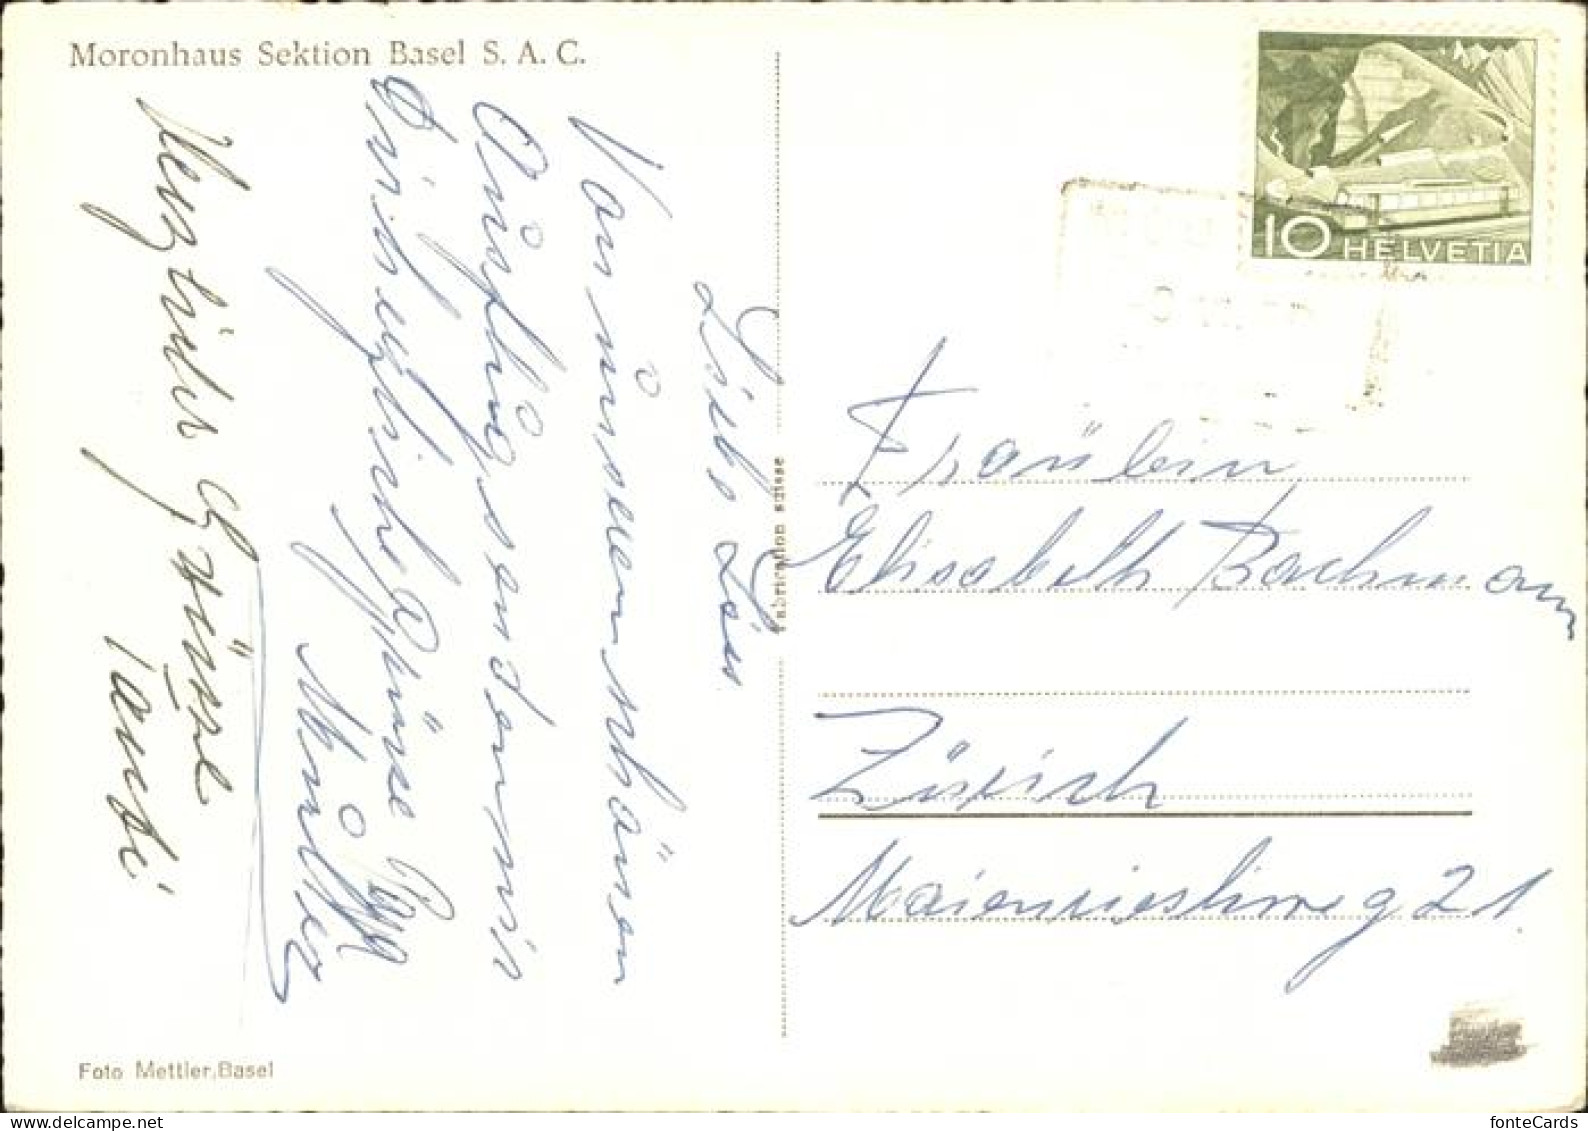 Moronhaus Sektion Basel S. A. C.
Liebe
Von unserem schönen
Ausflug senden wir
Dir herzliche Grüsse
Müller
Herzliche Grüsse
Tanti
Fabrication suisse
10 HELVETIA
Fräulein
Elisabeth Bachmann
Zürich
Maienriesliweg 21
Foto Mettler, Basel
fonteCards